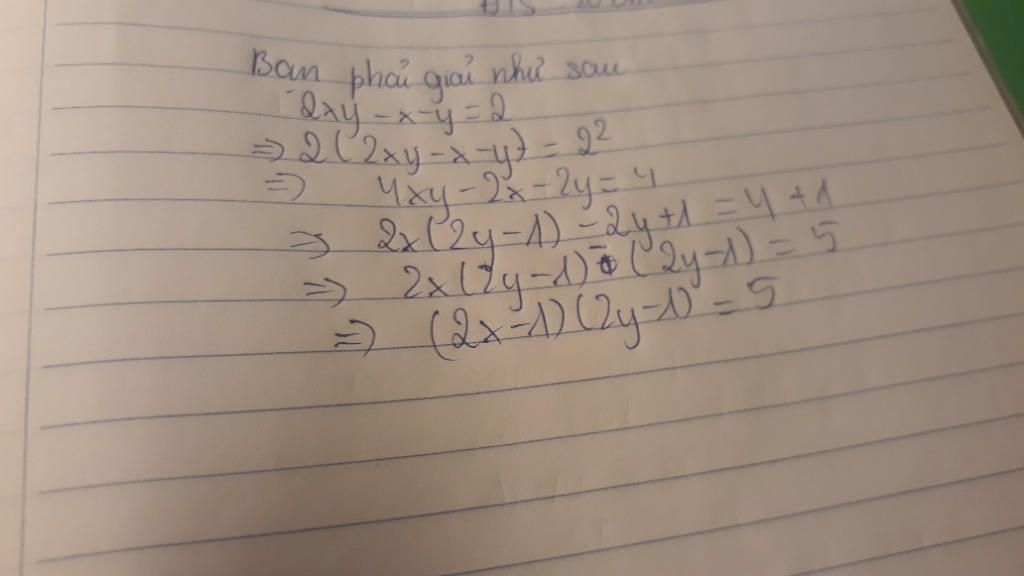 Bạn phải giải như sau
2xy - x - y = 2
=> 2(2xy - x - y) = 2²
=> 4xy - 2x - 2y = 4
=> 2x(2y - 1) - 2y + 1 = 4 + 1
=> 2x(2y - 1) - (2y - 1) = 5
=> (2x - 1)(2y - 1) = 5